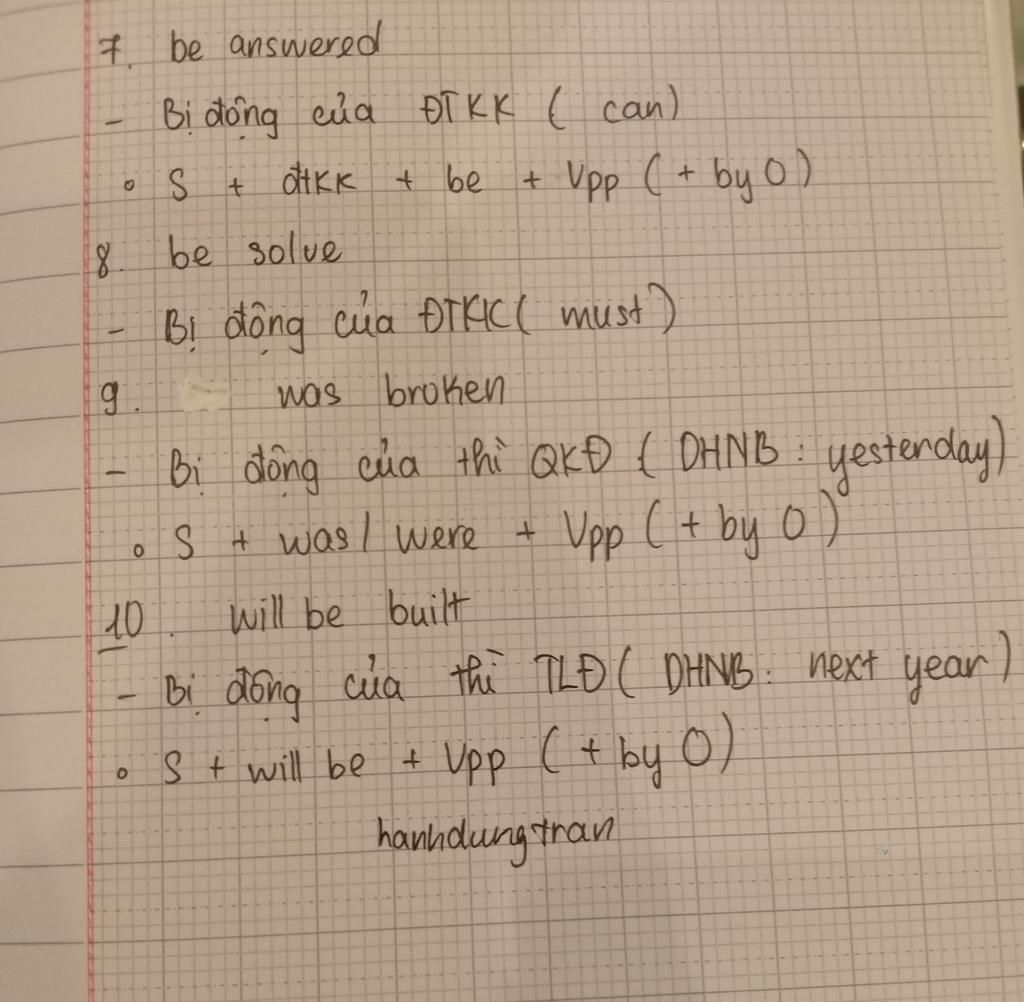 7. be answered
- Bị động của ĐTKK ( can)
∘ S + đtKK + be + Vpp ( + by O )
8. be solve
- Bị động của ĐTKK ( must )
9. was broken
- Bị động của thì QKĐ ( DHNB : yesterday)
∘ S + was / were + Vpp ( + by O )
10. will be built
- Bị động của thì TLĐ ( DHNB : next year )
∘ S + will be + Vpp ( + by O )
hanhdungtran